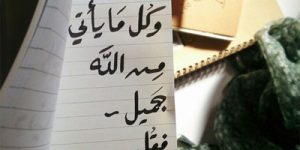 وكل ما يأتي
من اللَّه
جميل ~